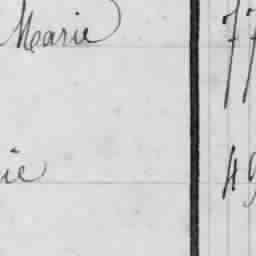 Marie 77
ie 49